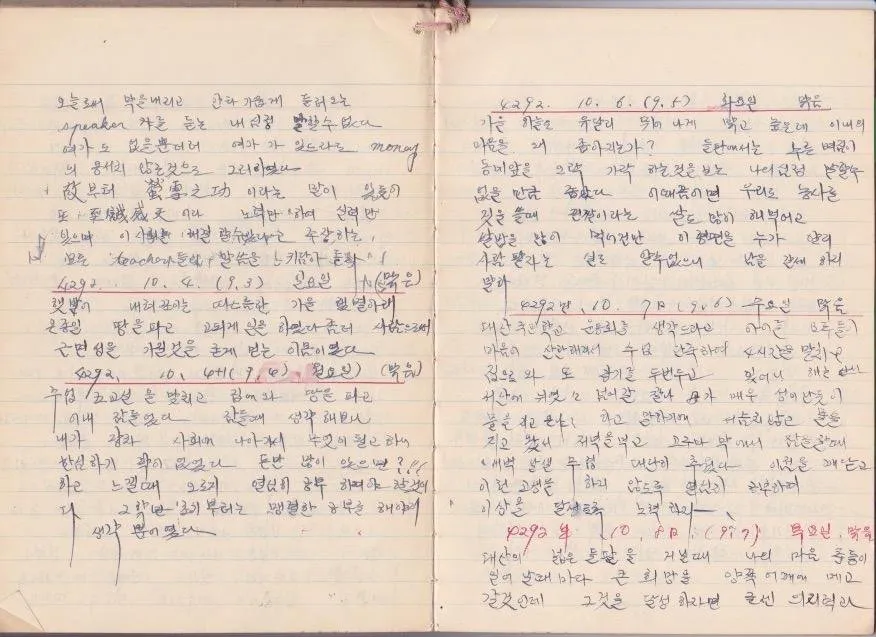 오늘로써 막을내리고 안타가웁게 들려오는
speaker 가를 듣는 내심정 말할수 없다
여가 도 없을뿐더러 여가 가 있드라도 money
의 용서치 않은것으로 그러하였다
故부터 螢雪之功 이라는 말이 있듯이
또 至誠感天 이라 노력만 하여 실력만
있으며 이 사회를 해결 할수있다고 주장하는
모든 teacher들의 말씀을 느끼남아
4292. 10. 4. (9. 3) 일요일 (맑은)
햇빛이 내려쪼이는 따스한 가을 햇볕아래
온종일 땅을파고 고되게 일을 하였다 좀더 사람으로써
근면성을 가질것을 굳게 믿는 이몸이였다
4292. 10. 4+1 (9. 4) 월요일) (맑음)
수업 5교실 을 마치고 집에와 땅을 파고
이내 잠들었다 잠들때 생각 해보니
내가 장차 사회에 나아가서 무엇이 될고 하니
한심하기 짝이 없었다 돈만 많이 있으면 ? ! ( (
하고 느낄때 오르지 열심히 공부 하여야 할것이
다 2학년 1호기 부터는 맹렬한 공부를 해야
생각 뿐이였다
4292. 10. 6. (9. 5) 화요일 맑음
가을 하늘은 유달리 뛰어나게 맑고 높은데 이내의
마음은 왜 좁아지는가? 들판에서는 누른 벼이
동네앞을 오락 가락 하는것을 보는 나의심정 말할수
없을 만큼 좁았다 이때쯤이면 우리도 농사를
짓을 쓸때 괜찮이라는 쌀도 많이 해북어고
쌀밥을 많이 먹어건만 이 형편을 누가 알리
사람 팔자는 실로 알수없으니 남을 괄세 하리
말라
4292년, 10. 7日 (9. 6) 수요일 맑음
대산국민학교 운동회를 생각드라고 아이들 모두들
마음이 산란해져서 수업 단축하여 4시간을 맟치고
집으로 와 또 감기를 두번두고 있어니 해는
서산에 뉘엿 넘어갈 찰나 母가 매우 성이난듯이
물을 지고 온나 하고 말하기에 서슴치 않고 물을
지고 왔다 저녁을먹고 고구마 막에서 잠을잘때
새벽 날샐 무렵 대단히 추웠다 이것을 깨닫고
이런 고생을 하지 않도록 열심히 공부하여
이상을 달성토록 노력 하리
4292 年 10. 8日. (9. 7) 목요일, 맑음
대산의 넓은 들판 을 거닐때 나의 마음 충동이
일어 날때마다 큰 희망을 양쪽 어깨에 메고
갈것인데 그것을 달성 하자면 굳센 의지력과